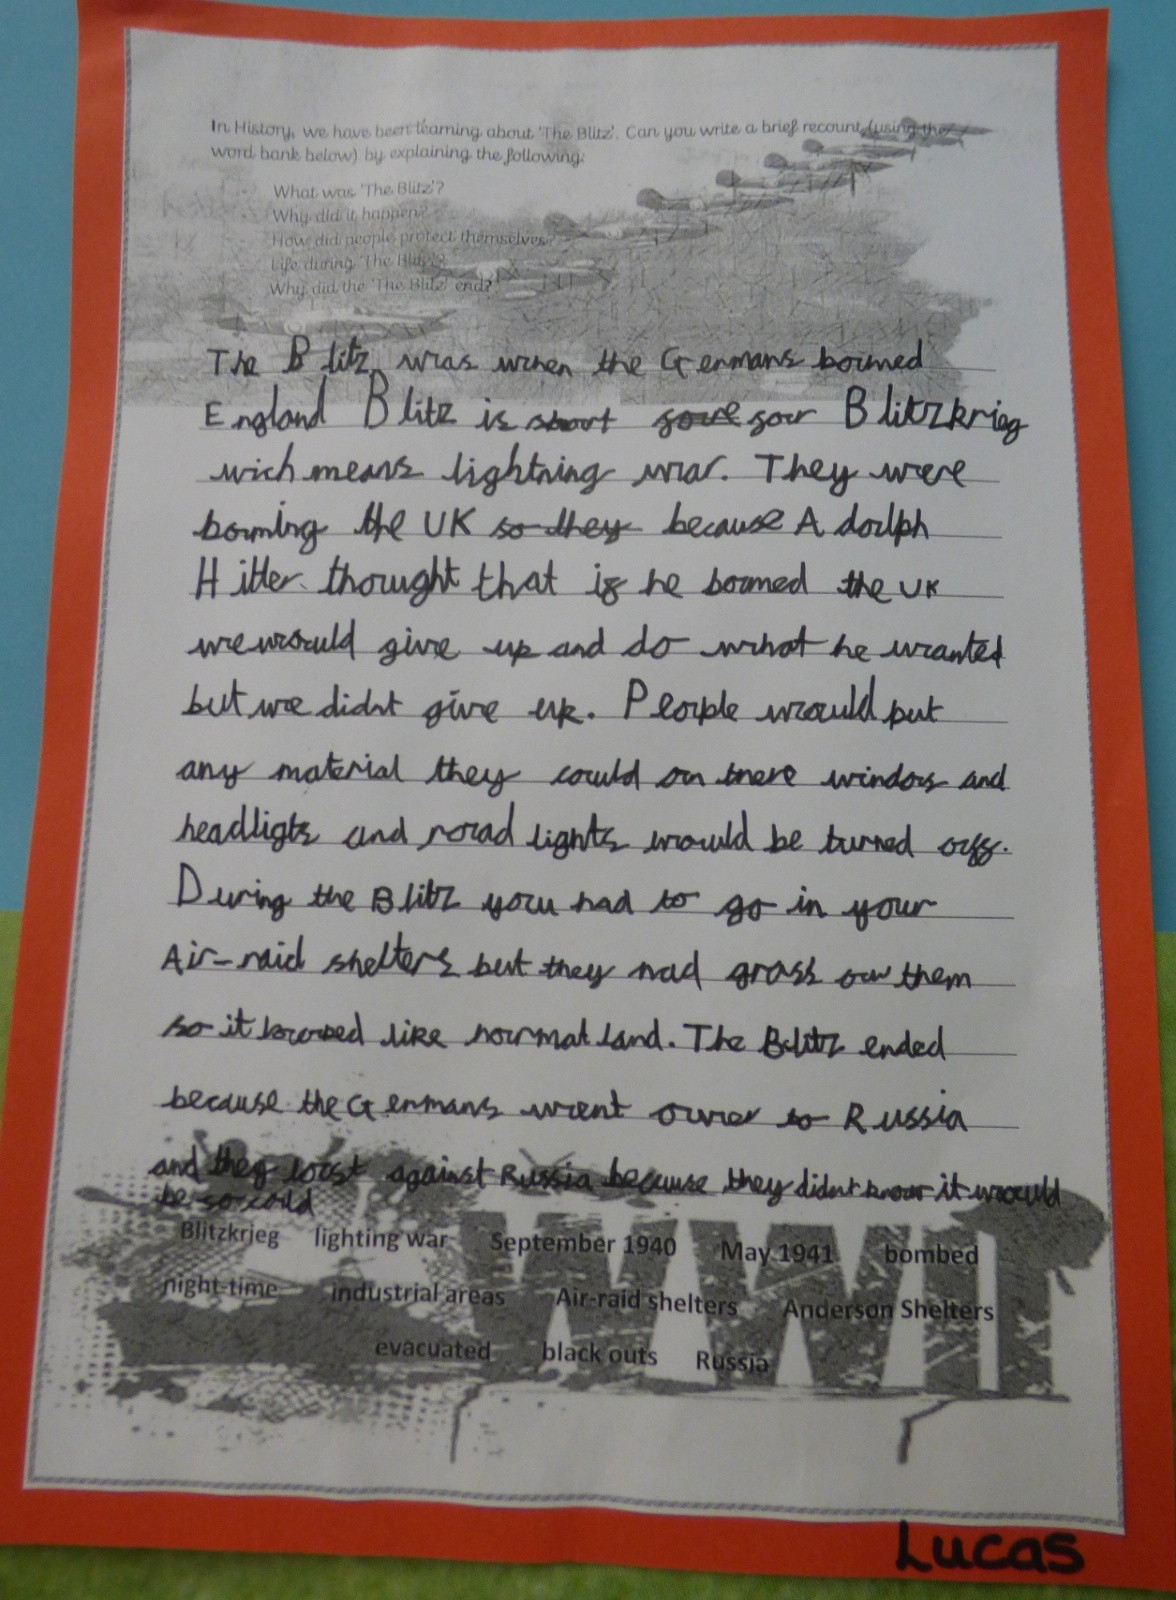 In History, we have been learning about 'The Blitz'. Can you write a brief recount (using the
word bank below) by explaining the following:
What was 'The Blitz'?
Why did it happen?
How did people protect themselves?
Life during 'The Blitz'?
Why did the 'The Blitz' end?
The Blitz was when the Germans bomed
England Blitz is short for Blitzkrieg
wich means lightning war. They were
boming the UK so they because Adolph
Hitler thought that if he bomed the UK
we would give up and do what he wanted
but we didnt give up. People would put
any material they could on there windows and
headligts and road lights would be turned off.
During the Blitz you had to go in your
Air-raid shelters but they had grass on them
so it looked like normal land. The Blitz ended
because the Germans went over to Russia
and they lost against Russia because they didnt know it would
be so cold
Blitzkrieg lighting war September 1940 May 1941 bombed
night-time industrial areas Air-raid shelters Anderson Shelters
evacuated black outs Russia
WWII
Lucas